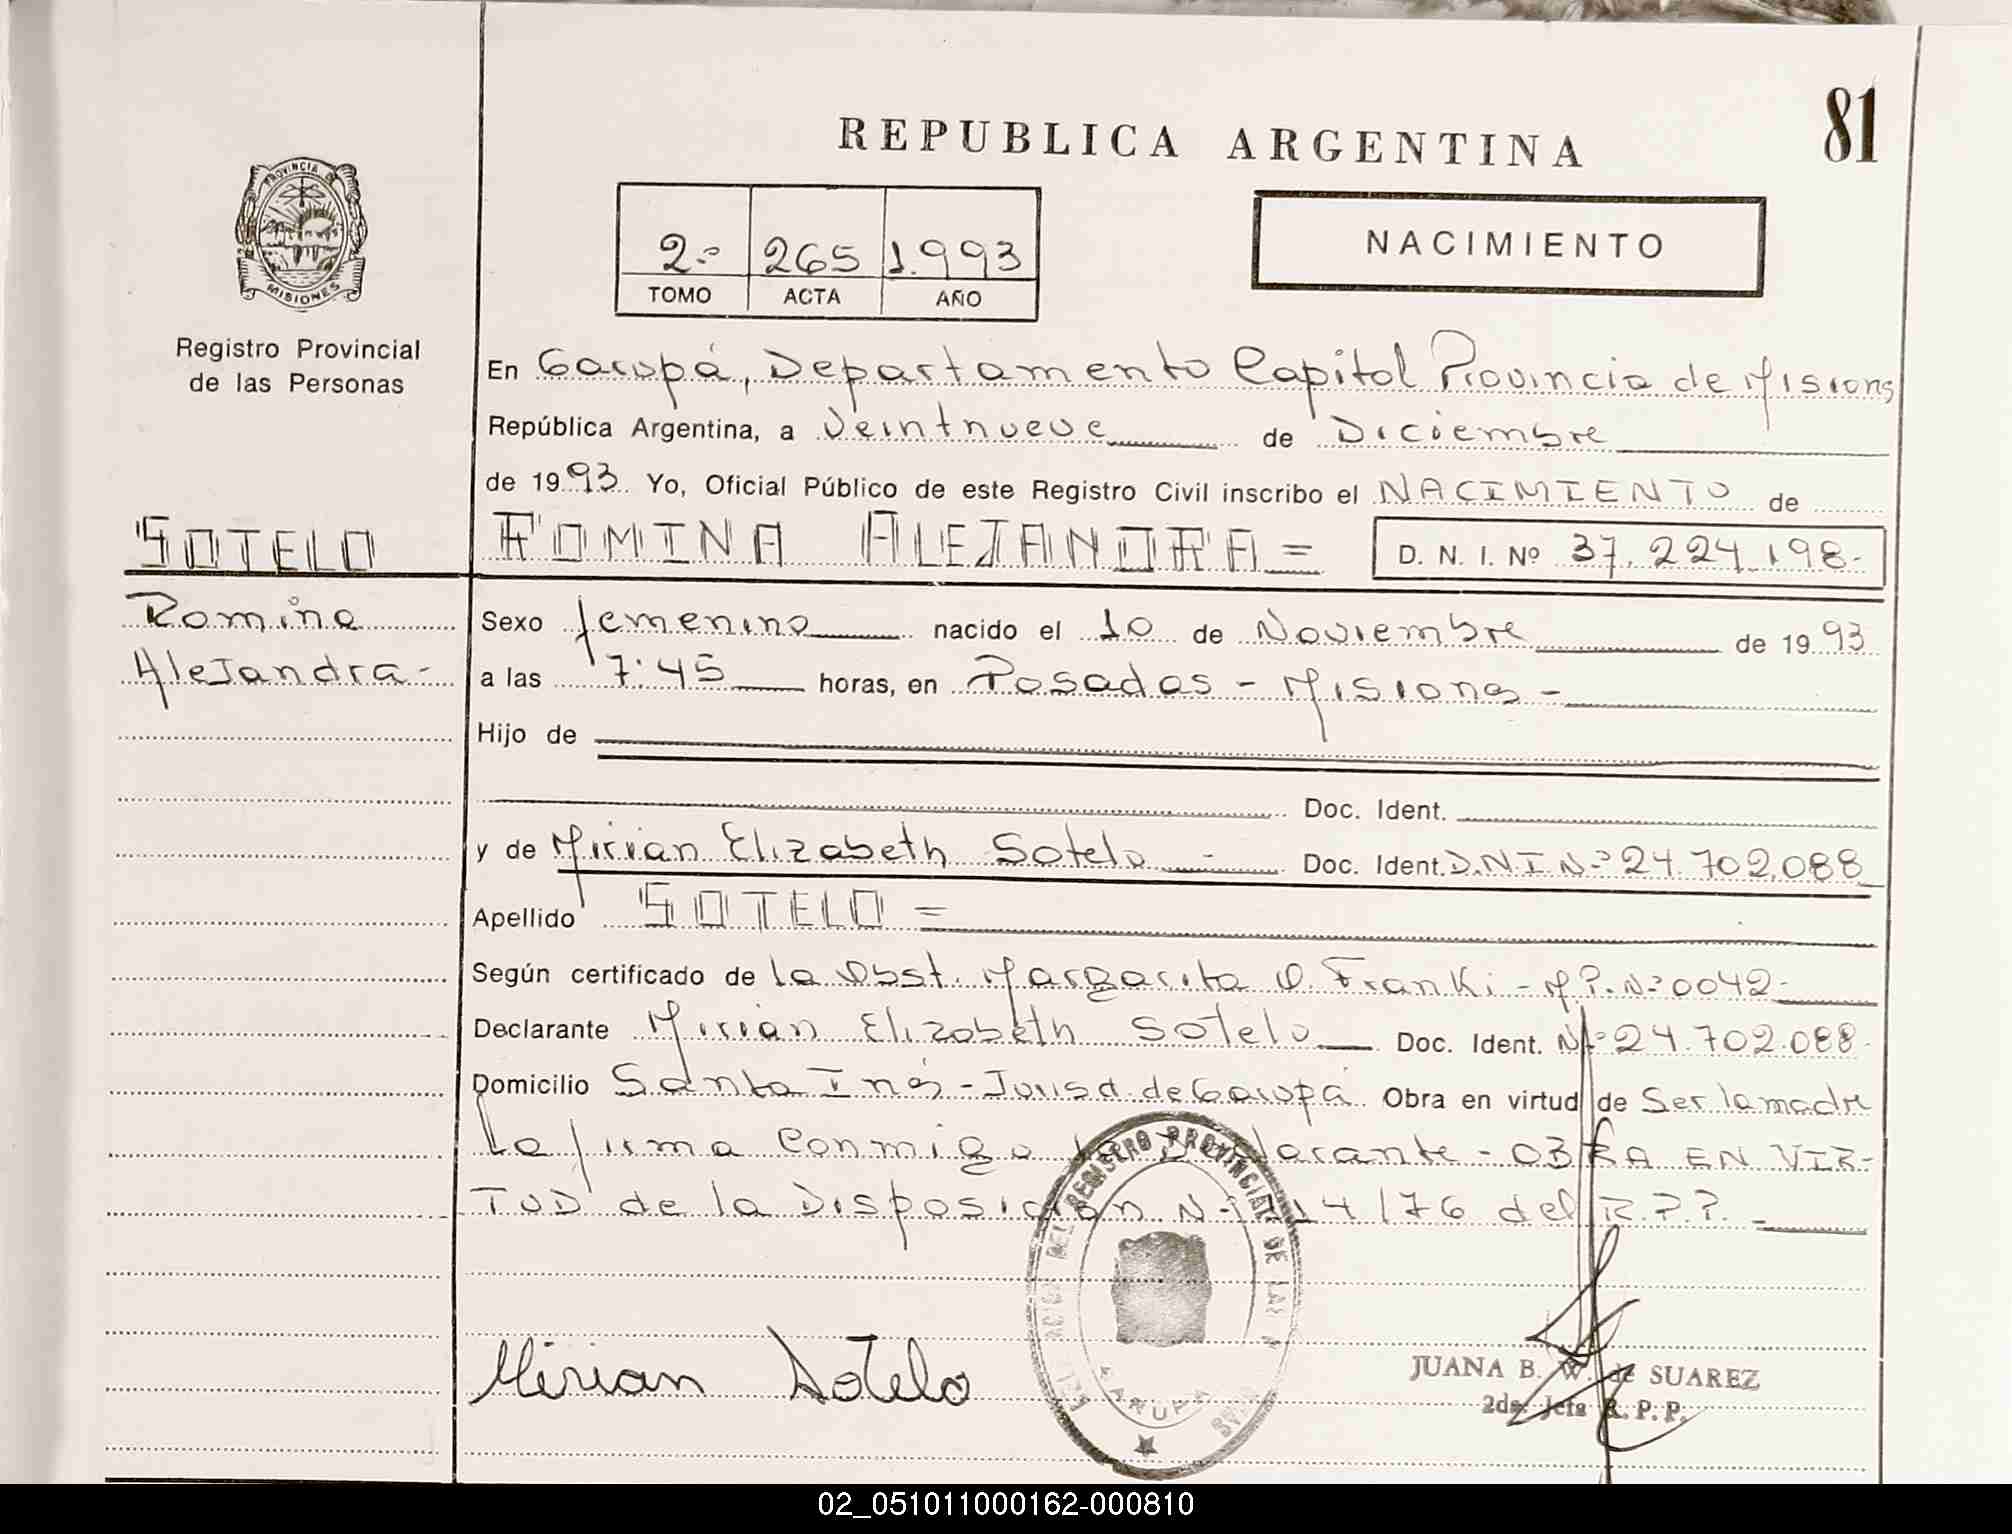 81
REPUBLICA ARGENTINA
PROVINCIA DE
MISIONES
Registro Provincial
de las Personas
2º 265 1.993
TOMO ACTA AÑO
NACIMIENTO
En Garupá, Departamento Capital Provincia de Misiones
República Argentina, a Veintnueve de Diciembre
de 1993 Yo, Oficial Público de este Registro Civil inscribo el NACIMIENTO de
SOTELO ROMINA ALEJANDRA = D. N. I. Nº 37.224.198-
Romina
Alejandra-
Sexo femenino nacido el 10 de Noviembre de 1993
a las 7:45 horas, en Posadas - Misiones -
Hijo de
Doc. Ident.
y de Mirian Elizabeth Sotelo - Doc. Ident. D.N.I Nº 24.702.088
Apellido SOTELO =
Según certificado de la Obst. Margarita O. Franki - M.P. Nº 0042-
Declarante Mirian Elizabeth Sotelo Doc. Ident. Nº 24.702.088-
Domicilio Santa Inés - Jurisd. de Garupá Obra en virtud de Ser la madre
La firma conmigo la Declarante - OBRA EN VIR-
TUD de la Disposición Nº 14/76 del R.P.P. -
Mirian Sotelo
REGISTRO PROVINCIAL DE LAS
GARUPA
JUANA B. W. de SUAREZ
2da. Jefa R. P. P.
02_051011000162-000810